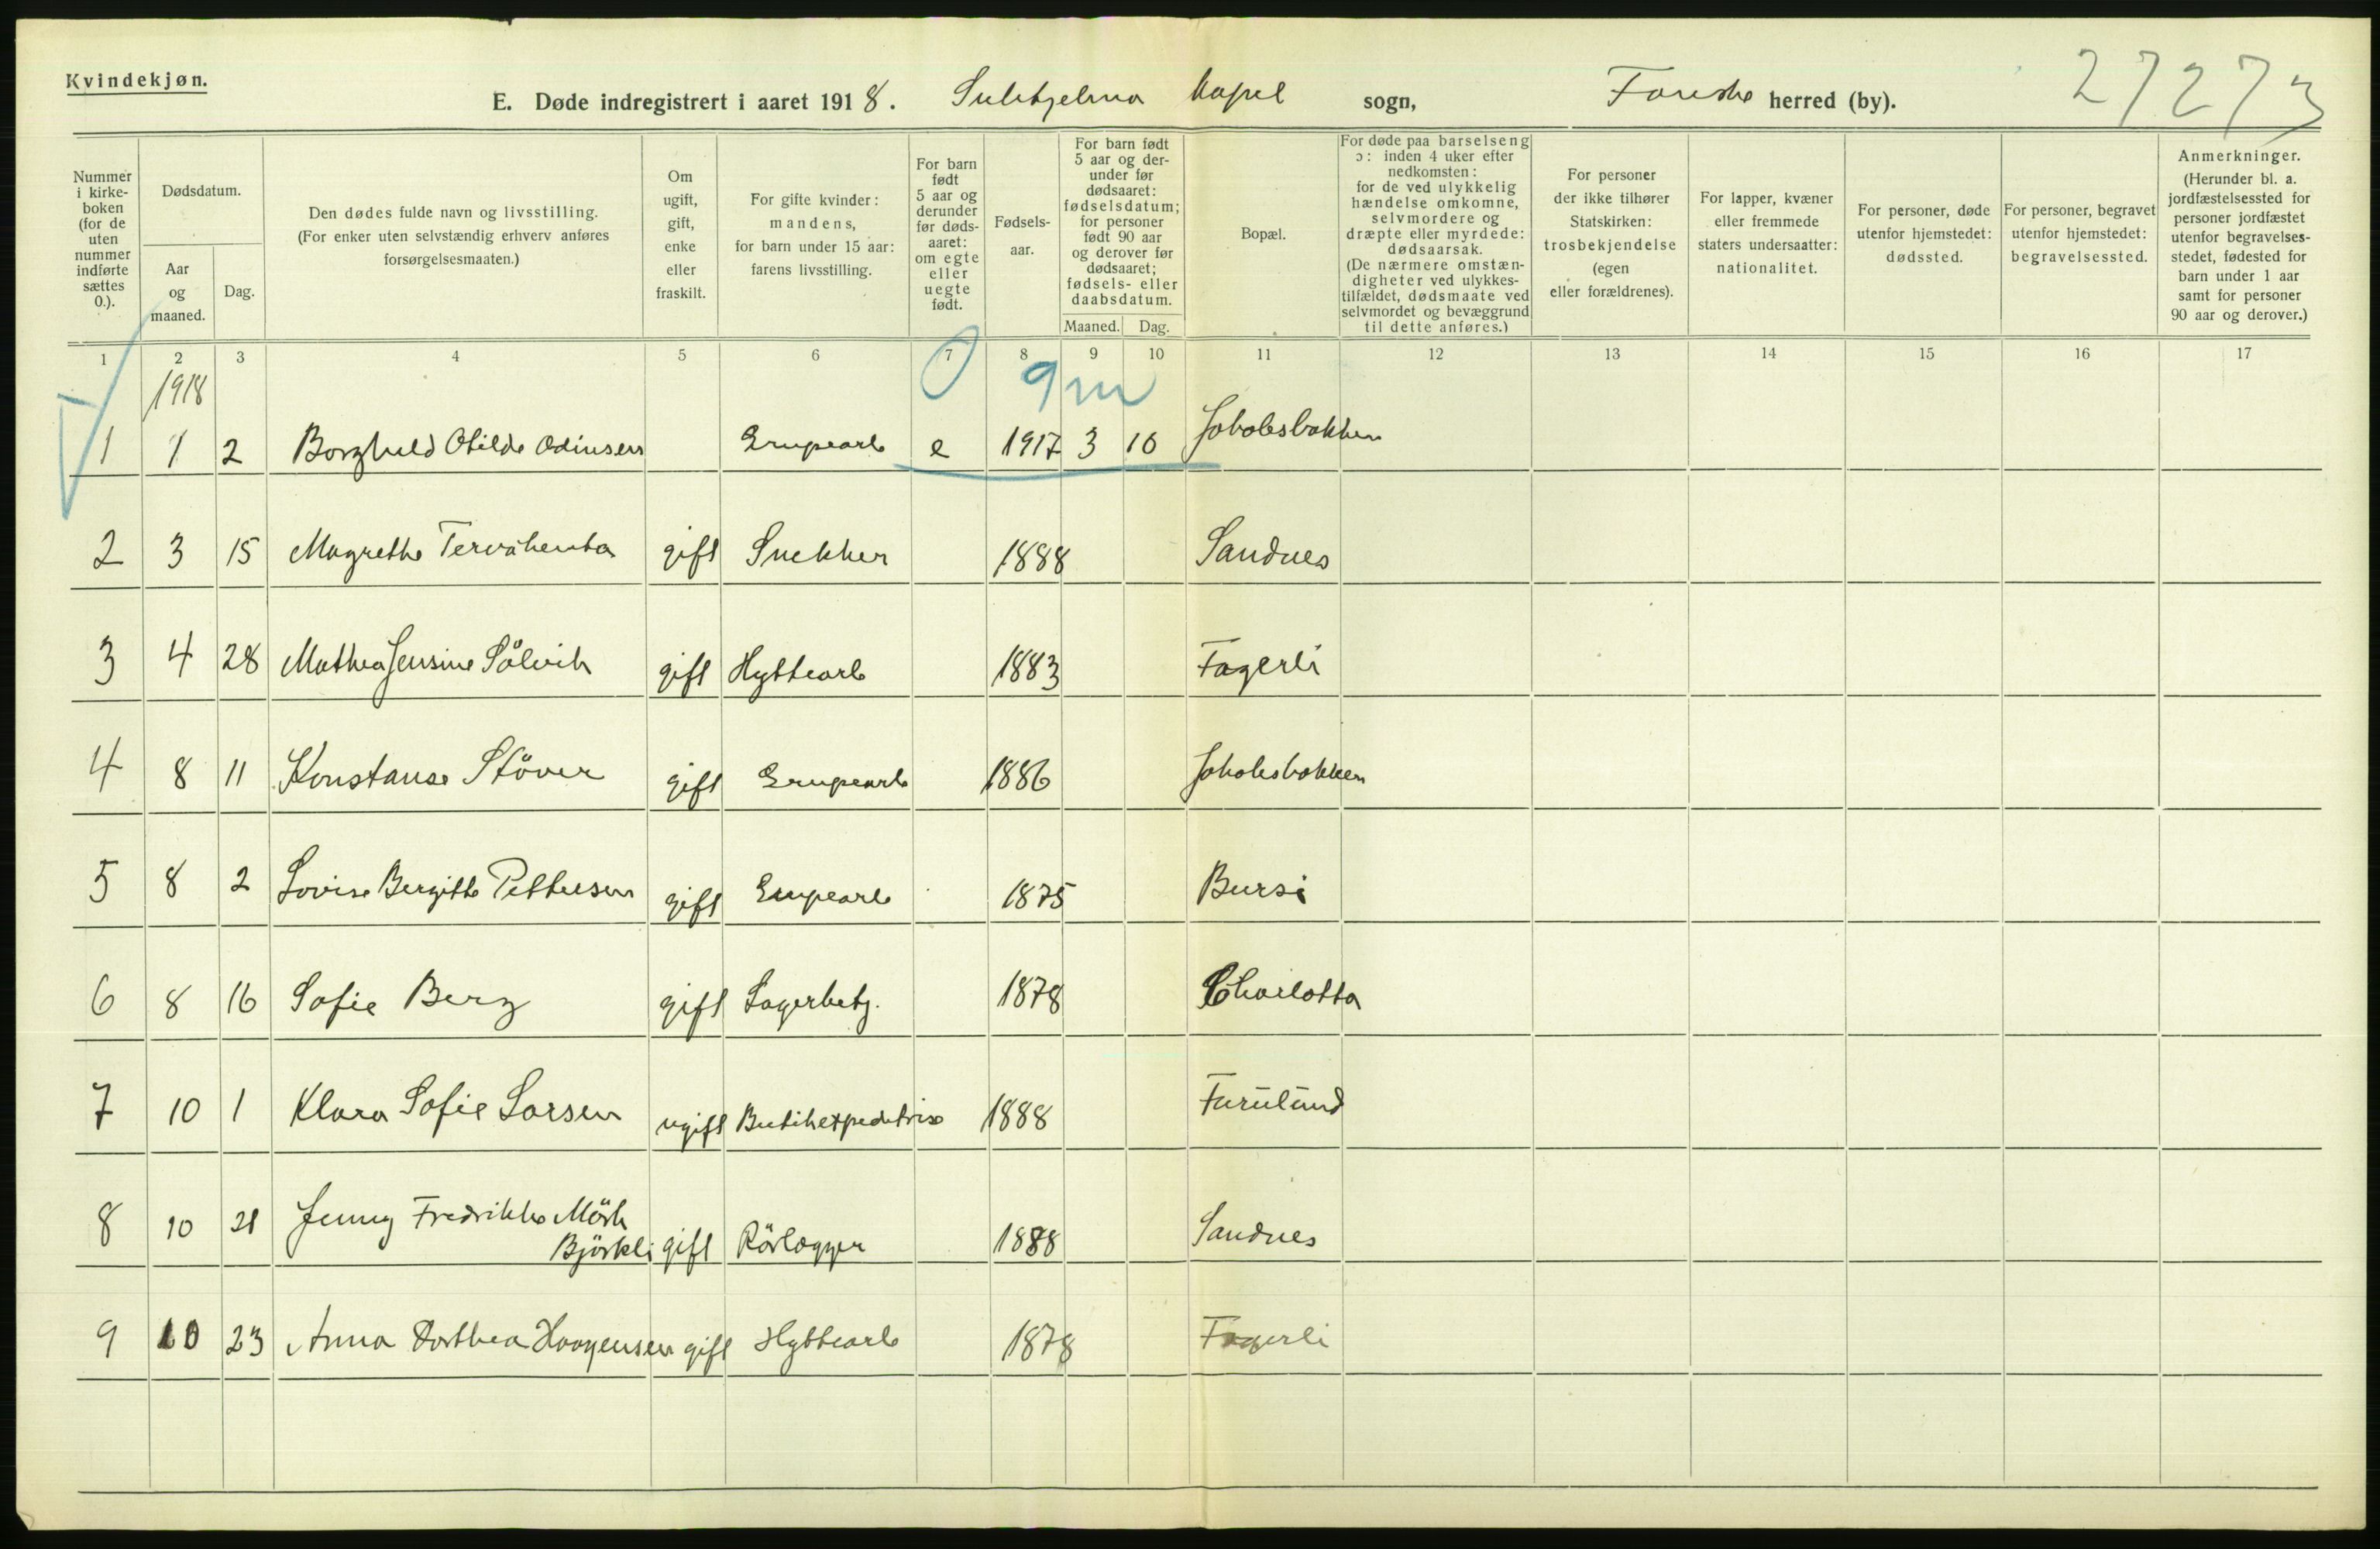 Kvindekjøn.
E. Døde indregistrert i aaret 1918. Sulitjelma Kapel sogn, Fauske herred (by).
27273
Nummer i kirkeboken (for de uten nummer indførte sættes 0.).
Dødsdatum.
Aar og maaned.
Dag.
Den dødes fulde navn og livsstilling.
(For enker uten selvstændig erhverv anføres forsørgelsesmaaten.)
Om ugift, gift, enke eller fraskilt.
For gifte kvinder: mandens, for barn under 15 aar: farens livsstilling.
For barn født 5 aar og derunder før dødsaaret: om egte eller uegte født.
Fødselsaar.
For barn født 5 aar og derunder før dødsaaret: fødselsdatum; for personer født 90 aar og derover før dødsaaret; fødsels- eller daabsdatum.
Maaned. Dag.
Bopæl.
For døde paa barselseng ɔ: inden 4 uker efter nedkomsten: for de ved ulykkelig hændelse omkomne, selvmordere og dræpte eller myrdede: dødsaarsak. (De nærmere omstændigheter ved ulykkestilfældet, dødsmaate ved selvmordet og bevæggrund til dette anføres.)
For personer der ikke tilhører Statskirken: trosbekjendelse (egen eller forældrenes).
For lapper, kvæner eller fremmede staters undersaatter: nationalitet.
For personer, døde utenfor hjemstedet: dødssted.
For personer, begravet utenfor hjemstedet: begravelsessted.
Anmerkninger. (Herunder bl. a. jordfæstelsessted for personer jordfæstet utenfor begravelsesstedet, fødested for barn under 1 aar samt for personer 90 aar og derover.)
1 2 3 4 5 6 7 8 9 10 11 12 13 14 15 16 17
1918
0 9 m
1 1 2 Borghild Otilde Odinsen Grupearb e 1917 3 10 Jakobsbakken
2 3 15 Magrethe Tervahenta gift Snekker 1888 Sandnes
3 4 28 Mathea Jensine Sölvik gift Hyttearb 1883 Fagerli
4 8 11 Konstanse Stöver gift Grupearb 1886 Jakobsbakken
5 8 2 Lovise Bergitte Pettersen gift Grupearb 1875 Bursi
6 8 16 Sofie Berg gift Lagerbetj. 1878 Charlotta
7 10 1 Klara Sofie Larsen ugift Butikexpeditrise 1888 Furulund
8 10 21 Jenny Fredrikke Mörk
Björkli gift Rörlægger 1888 Sandnes
9 10 23 Anna Dorthea Haagensen gift Hyttearb 1878 Fagerli